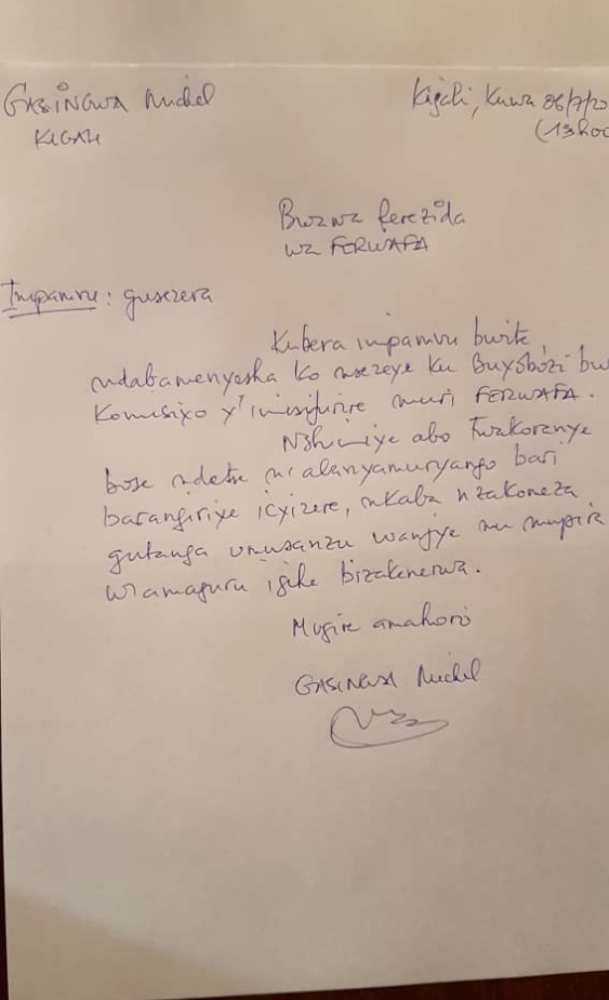 GASINGWA Michel
Kigali, Kuwa 06/7/20
KIGALI
(13h00
Bwana Perezida
wa FERWAFA
Impamvu: gusezera
Kubera impamvu bwite,
ndabamenyesha ko nsezeye ku Buyobozi bw
Komisiyo y'imisifurire muri FERWAFA.
Nshimiye abo twakoranye
bose ndetse n'abanyamuryango bari
barangiriye icyizere, nkaba nzakomeza
gutanga umusanzu wanjye mu mupira
w'amaguru igihe bizakenerwa.
Mugire amahoro
GASINGWA Michel